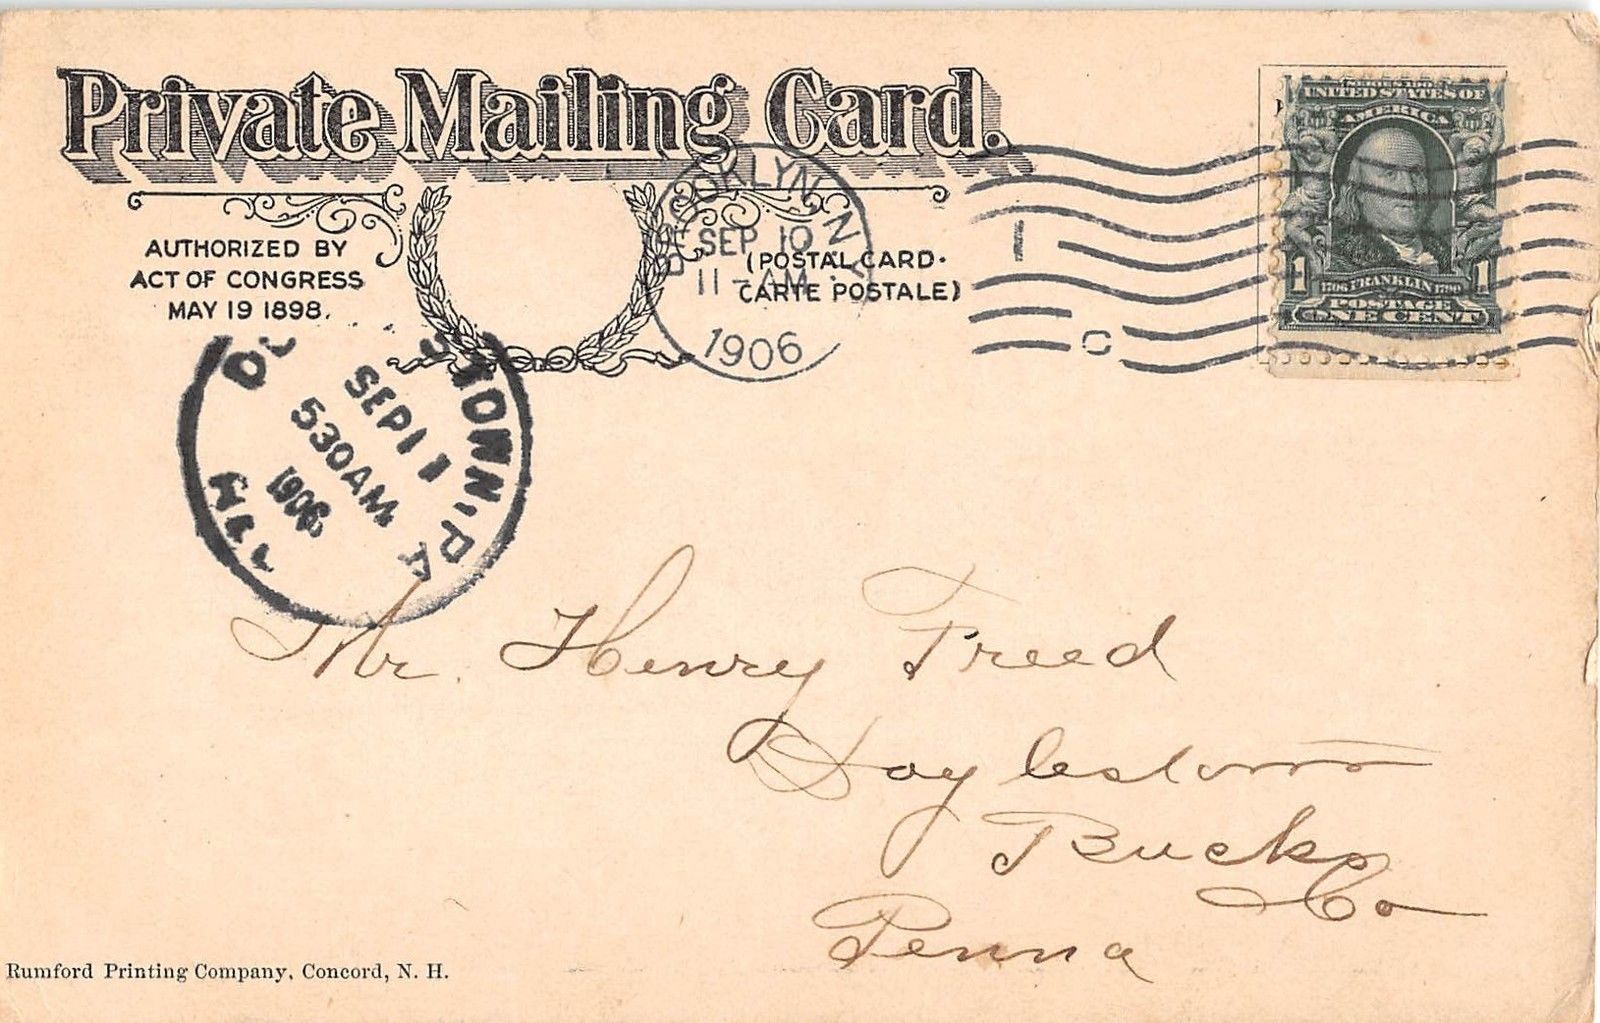 Private Mailing Card.
AUTHORIZED BY
ACT OF CONGRESS
MAY 19 1898.
(POSTAL CARD-
CARTE POSTALE)
BROOKLYN N.Y.
SEP 10
11-AM
1906
1
C
UNITED STATES OF
AMERICA
1 1
1706 FRANKLIN 1790
POSTAGE
ONE CENT
STOWN, PA
SEP 11
530AM
1906
Mr. Henry Freed
Doylestown
Bucks
Co
Penna
Rumford Printing Company, Concord, N. H.